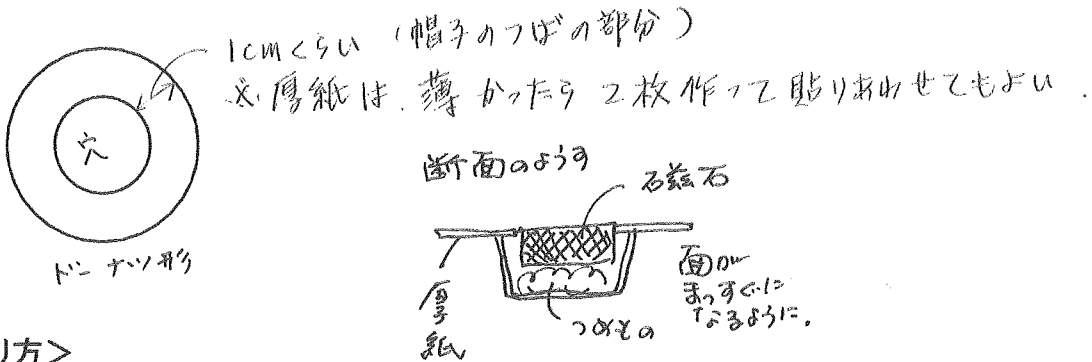 1cmくらい（帽子のつばの部分）
※厚紙は、薄かったら2枚作って貼りあわせてもよい.
穴
ドーナツ形
断面のようす
磁石
厚紙
つめもの
面が
まっすぐに
なるように.
り方＞